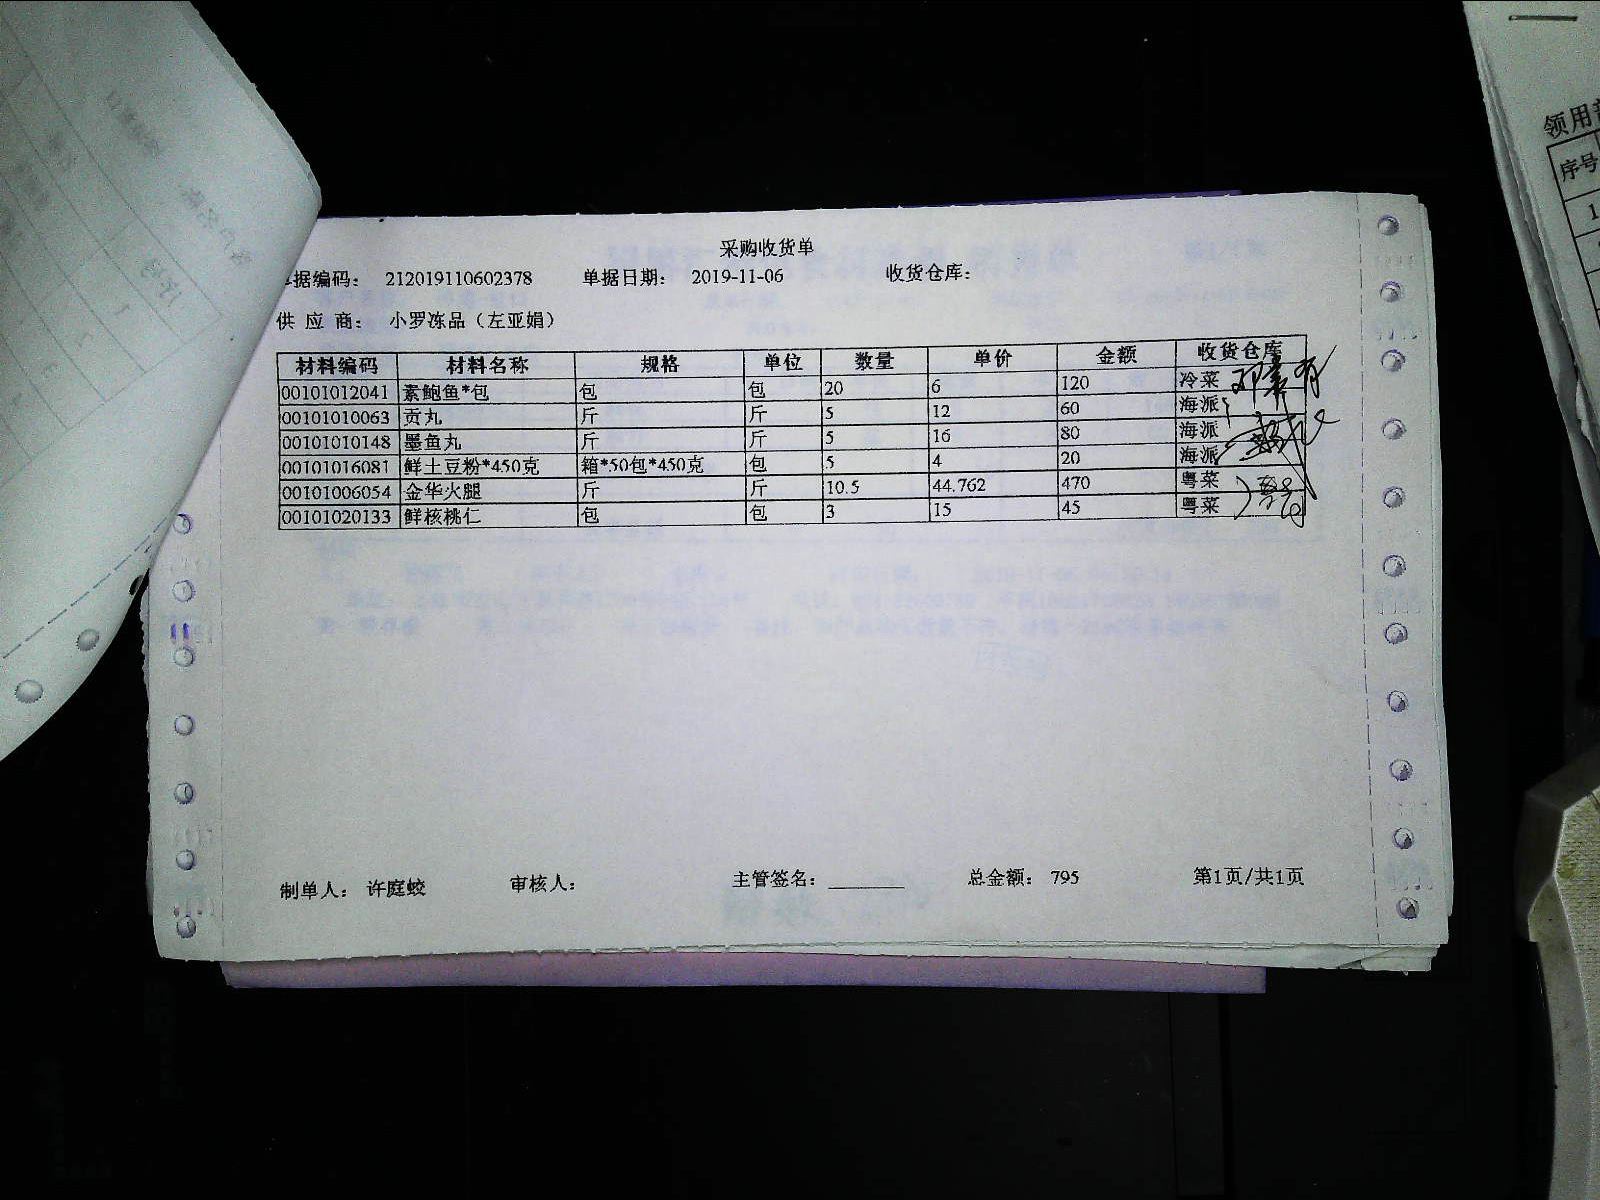 采购收货单
据编码： 212019110602378 单据日期： 2019-11-06 收货仓库：
供 应 商： 小罗冻品（左亚娟）
材料编码 材料名称 规格 单位 数量 单价 金额 收货仓库
00101012041 素鲍鱼*包 包 包 20 6 120 冷菜
00101010063 贡丸 斤 斤 5 12 60 海派
00101010148 墨鱼丸 斤 斤 5 16 80 海派
00101016081 鲜土豆粉*450克 箱*50包*450克 包 5 4 20 海派
00101006054 金华火腿 斤 斤 10.5 44.762 470 粤菜
00101020133 鲜核桃仁 包 包 3 15 45 粤菜
制单人： 许庭蛟 审核人： 主管签名： 总金额： 795 第1页/共1页
领用
序号
1